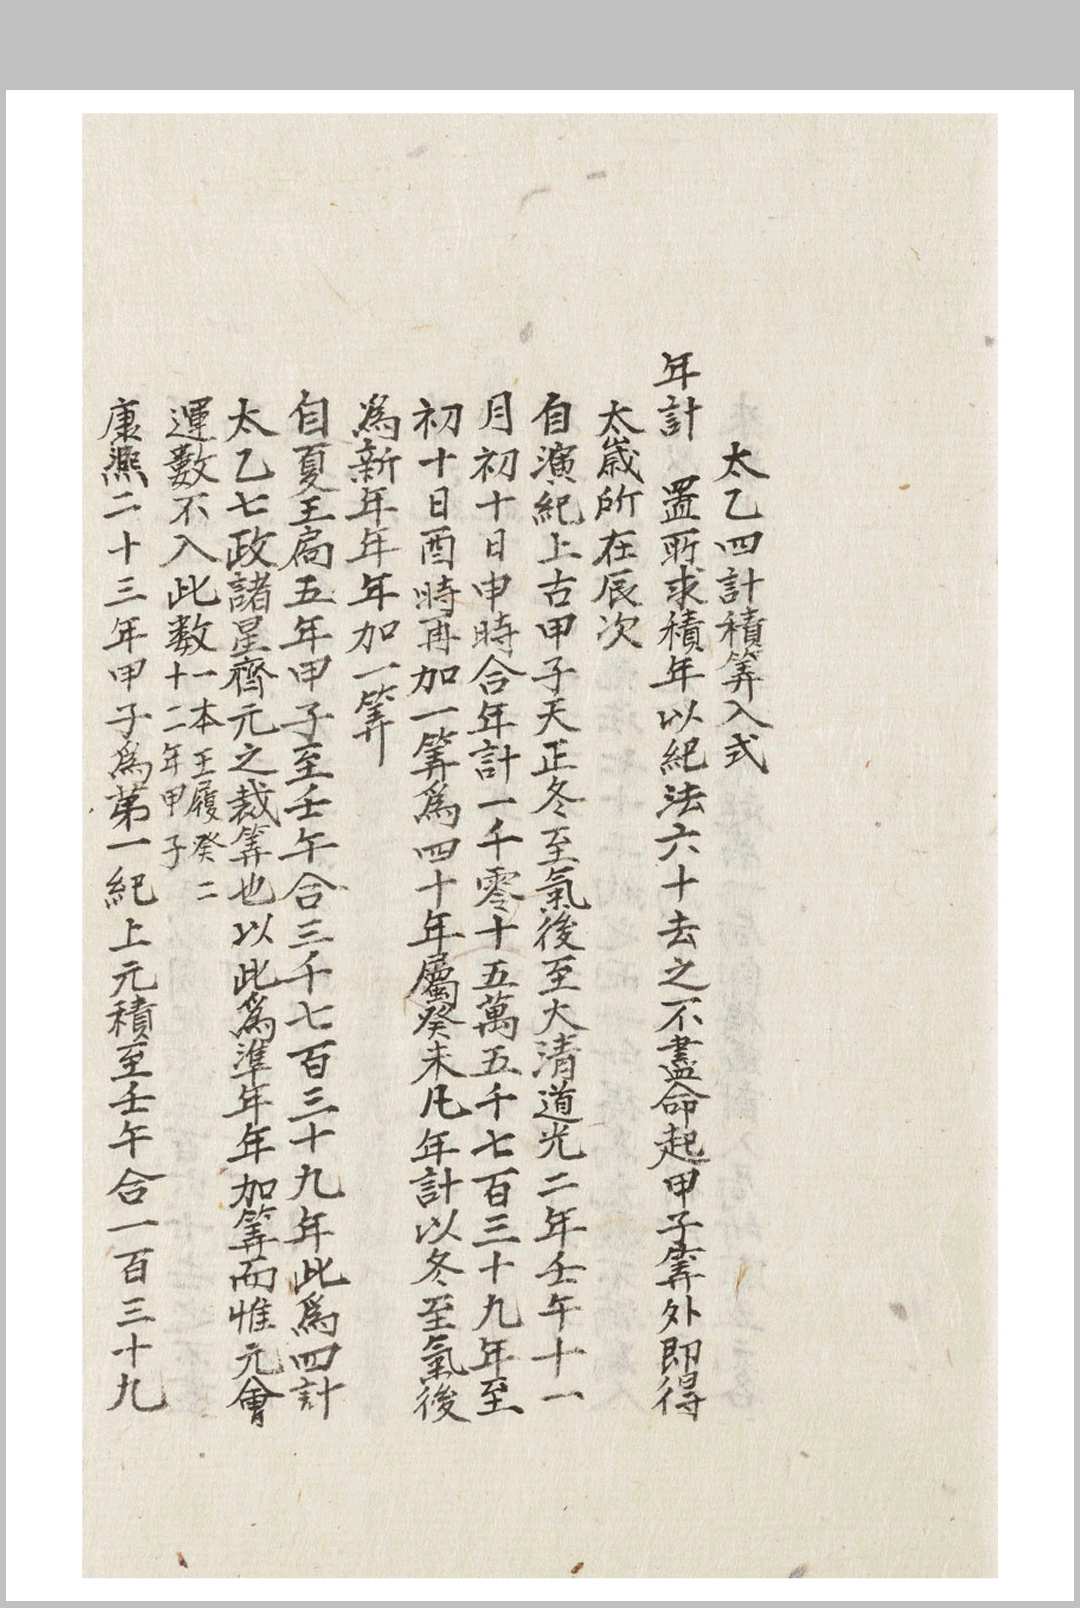 太乙四計積筭入式
年計 置所求積年以紀法六十去之不盡命起甲子筭外即得
太歲所在辰次
自演紀上古甲子天正冬至氣後至大清道光二年壬午十一
月初十日申時合年計一千零十五萬五千七百三十九年至
初十日酉時再加一筭為四十年屬癸未凡年計以冬至氣後
為新年年年加一筭
自夏王扃五年甲子至壬午合三千七百三十九年此為四計
太乙七政諸星齊元之裁筭也以此為準年年加筭而惟元會
運數不入此数一本王履癸二
十二年甲子
康熙二十三年甲子為第一紀上元積至壬午合一百三十九